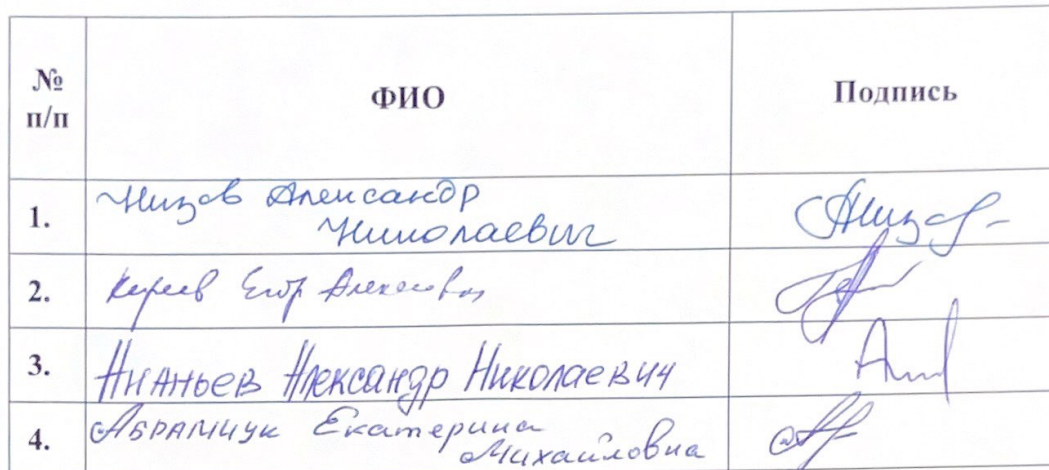 № п/п ФИО Подпись
1. Низов Александр
Николаевич
2. Егор Алексеевич
3. Ананьев Александр Николаевич
4. Абрамчук Екатерина
Михайловна